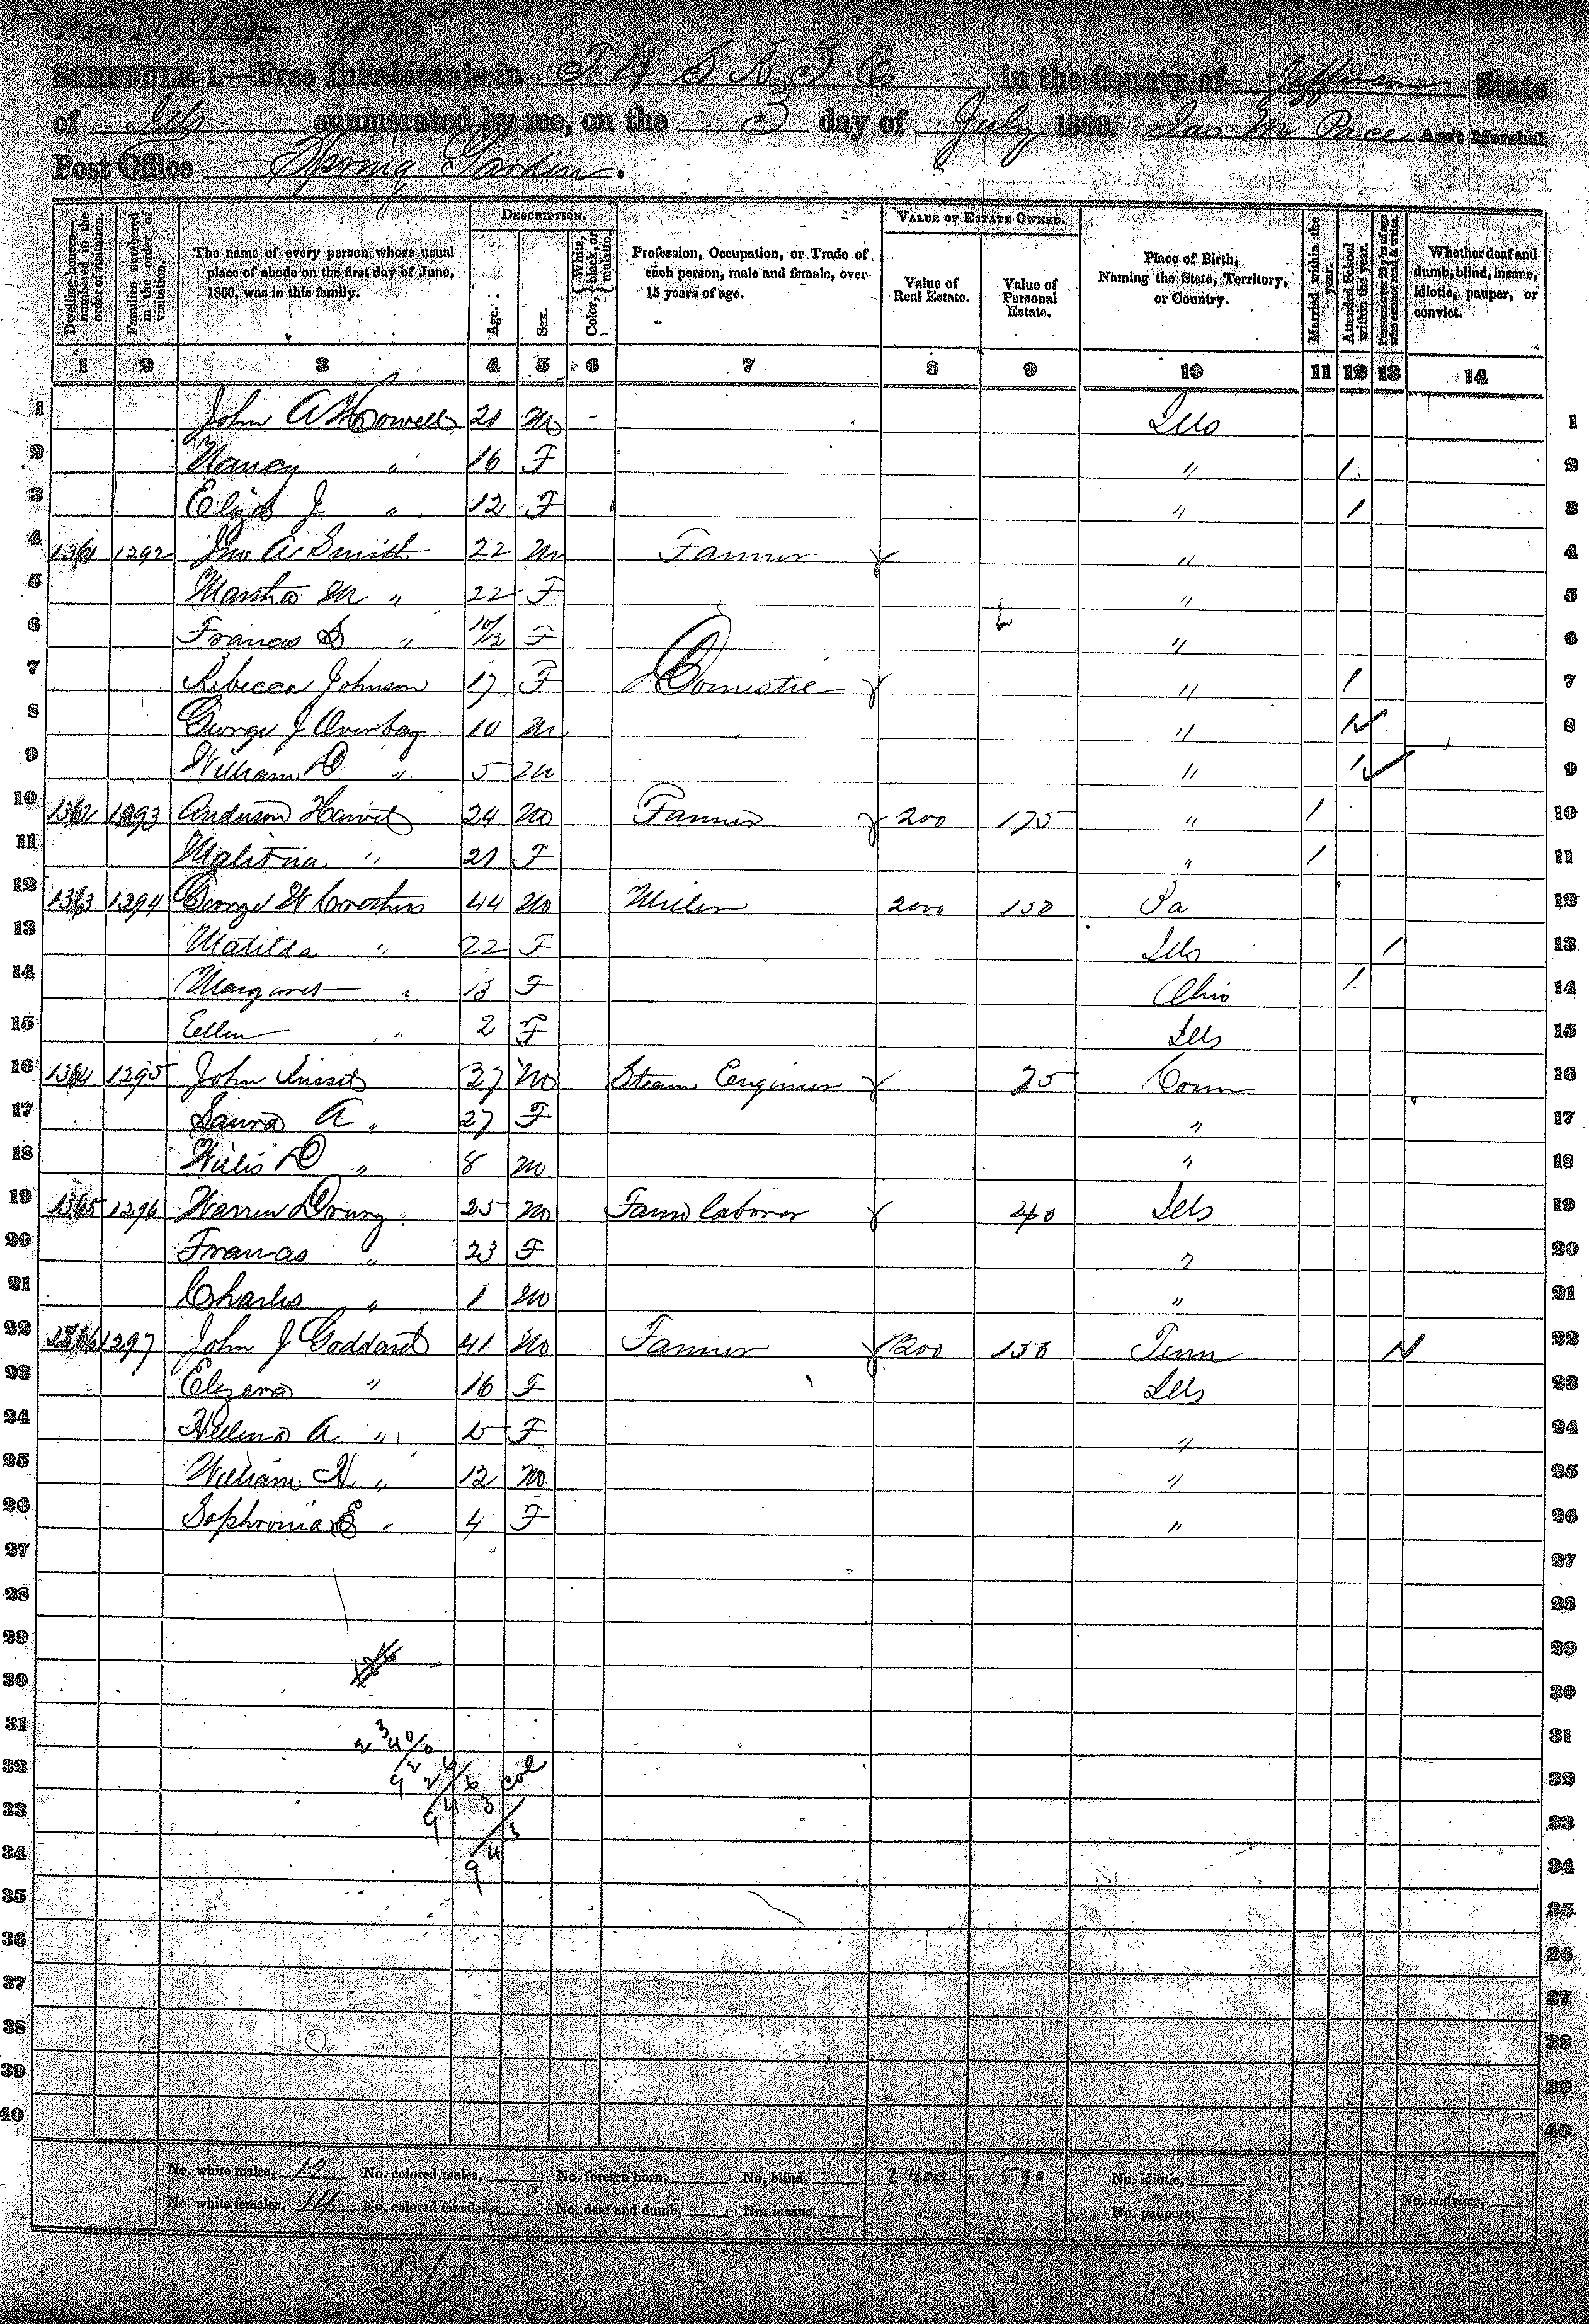 Page No. 187 975
SCHEDULE 1.—Free Inhabitants in T 4 S R 3 E in the County of Jefferson State
of Ills enumerated by me, on the 3 day of July 1860. Jas M Pace Ass't Marshal
Post Office Spring Garden.
Dwelling-houses—numbered in the order of visitation.
Families numbered in the order of visitation.
The name of every person whose usual place of abode on the first day of June, 1860, was in this family.
DESCRIPTION.
Age.
Sex.
Color, { White, black, or mulatto.
Profession, Occupation, or Trade of each person, male and female, over 15 years of age.
VALUE OF ESTATE OWNED.
Value of Real Estate.
Value of Personal Estate.
Place of Birth, Naming the State, Territory, or Country.
Married within the year.
Attended School within the year.
Persons over 20 y'rs of age who cannot read & write.
Whether deaf and dumb, blind, insane, idiotic, pauper, or convict.
1 2 3 4 5 6 7 8 9 10 11 12 13 14
1 John A Howell 21 M Ills 1
2 Nancy " 16 F " 1 2
3 Eliza J " 12 F " 1 3
4 1361 1292 Jno A Smith 22 M Farmer " 4
5 Martha M " 22 F " 5
6 Frances S " 10/12 F " 6
7 Rebecca Johnson 17 F Domestic " 1 7
8 George J Overbay 10 M " 1 8
9 William D " 5 M " 1 9
10 1362 1293 Anderson 24 M Farmer 200 175 " 1 10
11 " 21 F " 1 11
12 1363 1294 George W 44 M Miller 2000 150 Pa 12
13 Matilda " 22 F Ills 1 13
14 Margaret " 13 F Ohio 1 14
15 Ellen " 2 F Ills 15
16 1364 1295 John 37 M Steam Enginier 75 Conn 16
17 Laura A " 27 F " 17
18 Willis D " 8 M " 18
19 1365 1296 Warren 25 M Farm laborer 40 Ills 19
20 Frances " 23 F " 20
21 Charles " 1 M " 21
22 1366 1297 John J Goddard 41 M Farmer 200 150 Tenn 1 22
23 " 16 F Ills 23
24 A " F " 24
25 William H " 12 M " 25
26 Sophronia E " 4 F " 26
27 27
28 28
29 29
30 30
31 31
32 32
33 33
34 34
35 35
36 36
37 37
38 38
39 39
40 40
No. white males, 12 No. colored males, No. foreign born, No. blind, 2400 590 No. idiotic,
No. white females, 14 No. colored females, No. deaf and dumb, No. insane, No. paupers, No. convicts,
26